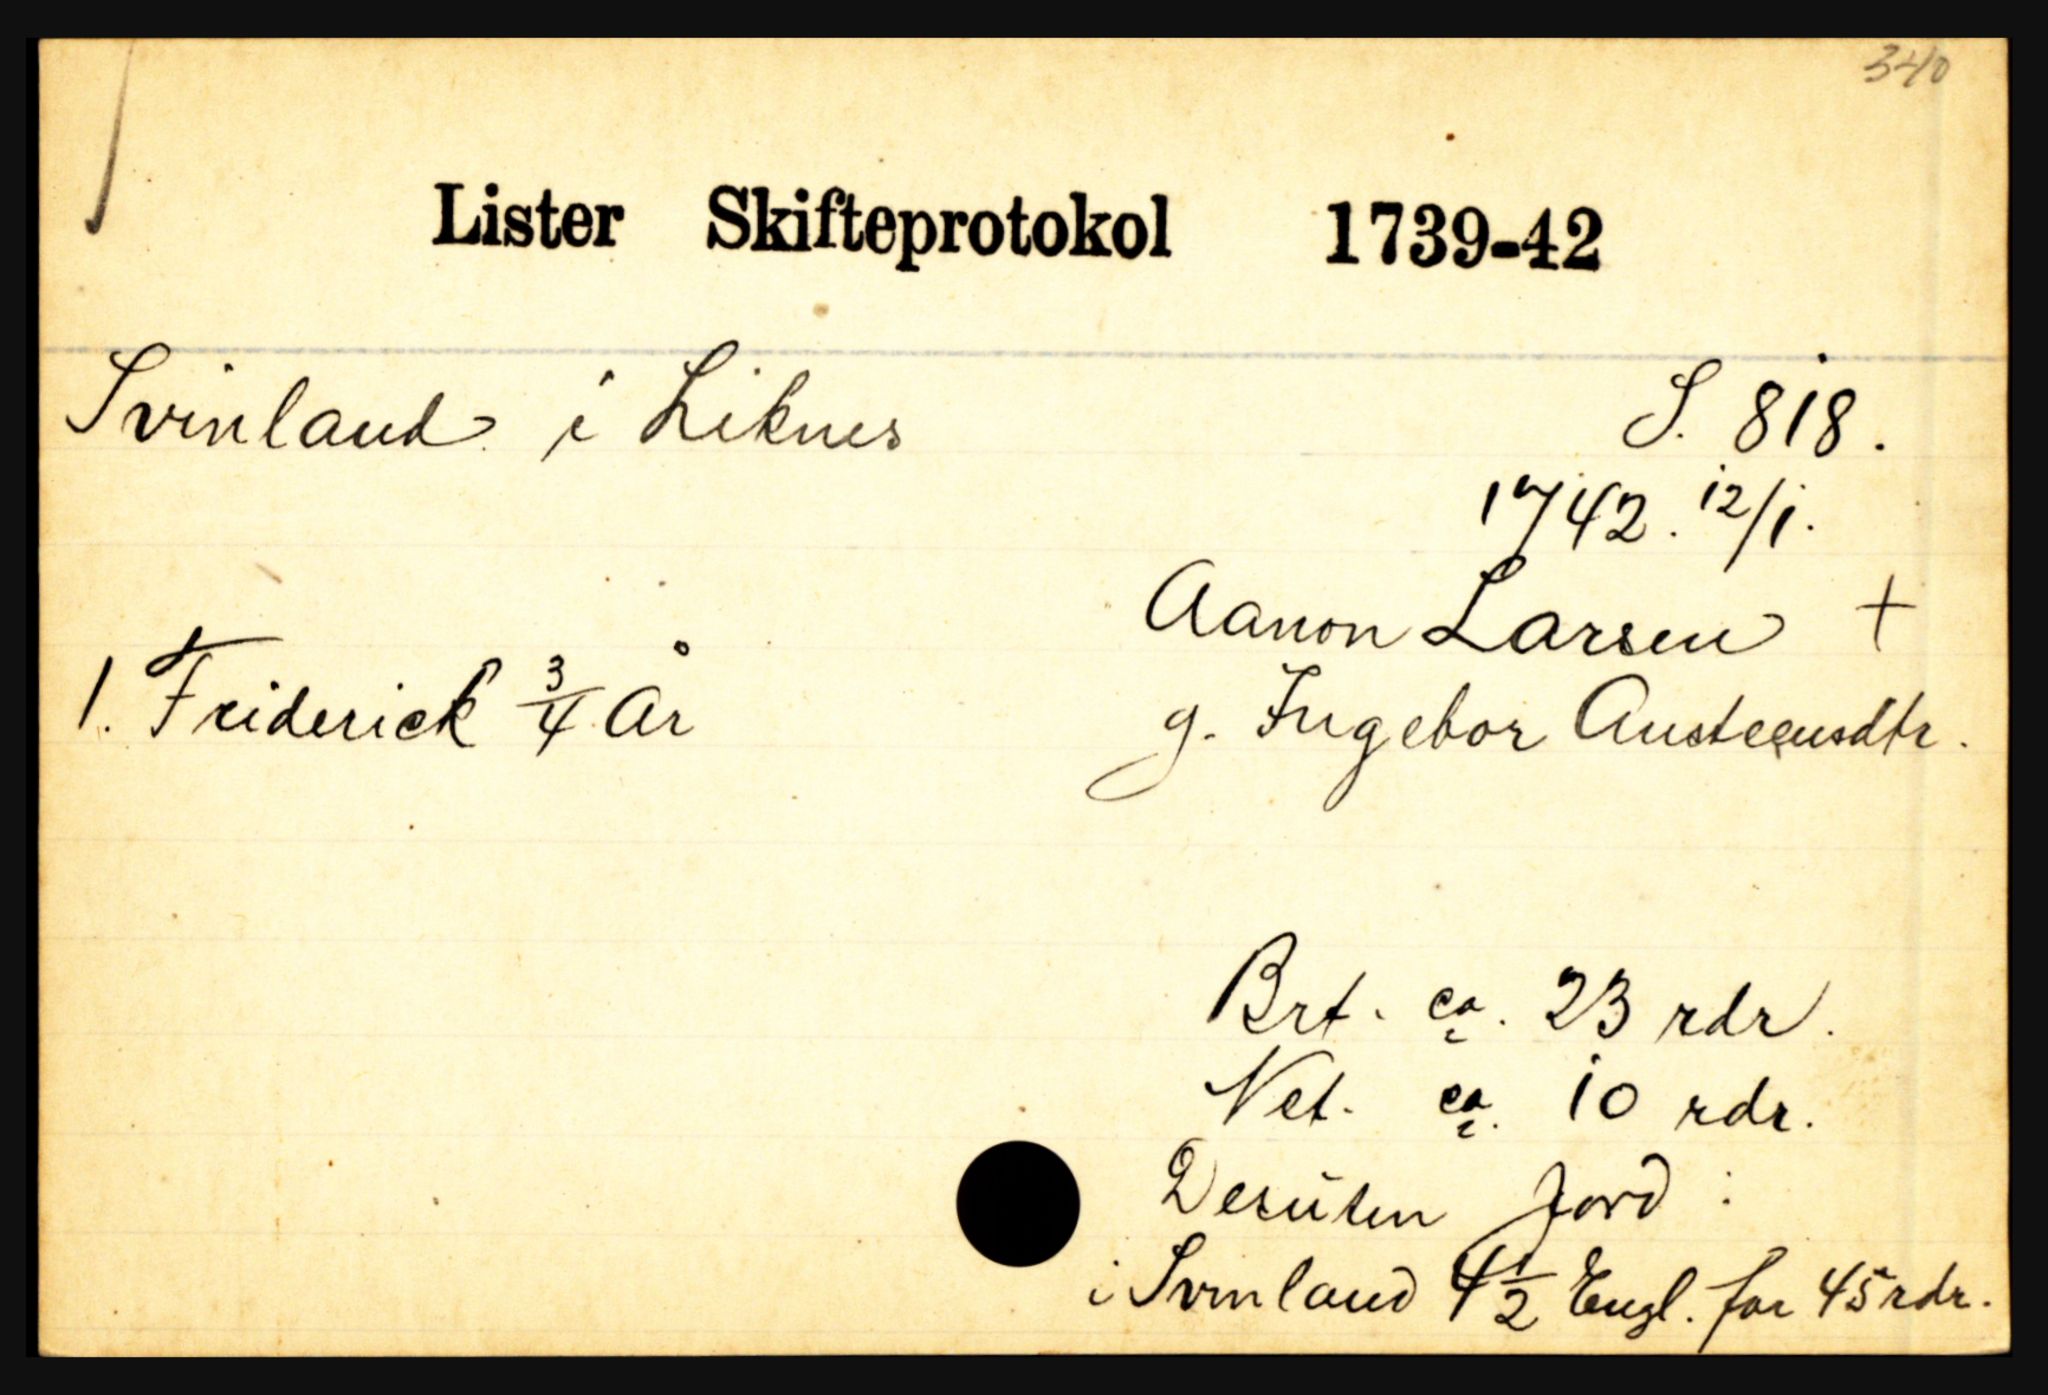 340
Lister Skifteprotokol 1739-42
Svinland i Liknes
S. 818.
1742. 12/1.
Aanon Larsen +
1. Friderick 3/4 År
g. Ingebor Austeensdtr.
Brt. ca. 23 rdr.
Net. ca. 10 rdr.
Desuten Jord :
i Svinland 4 1/2 Engl. for 45 rdr.